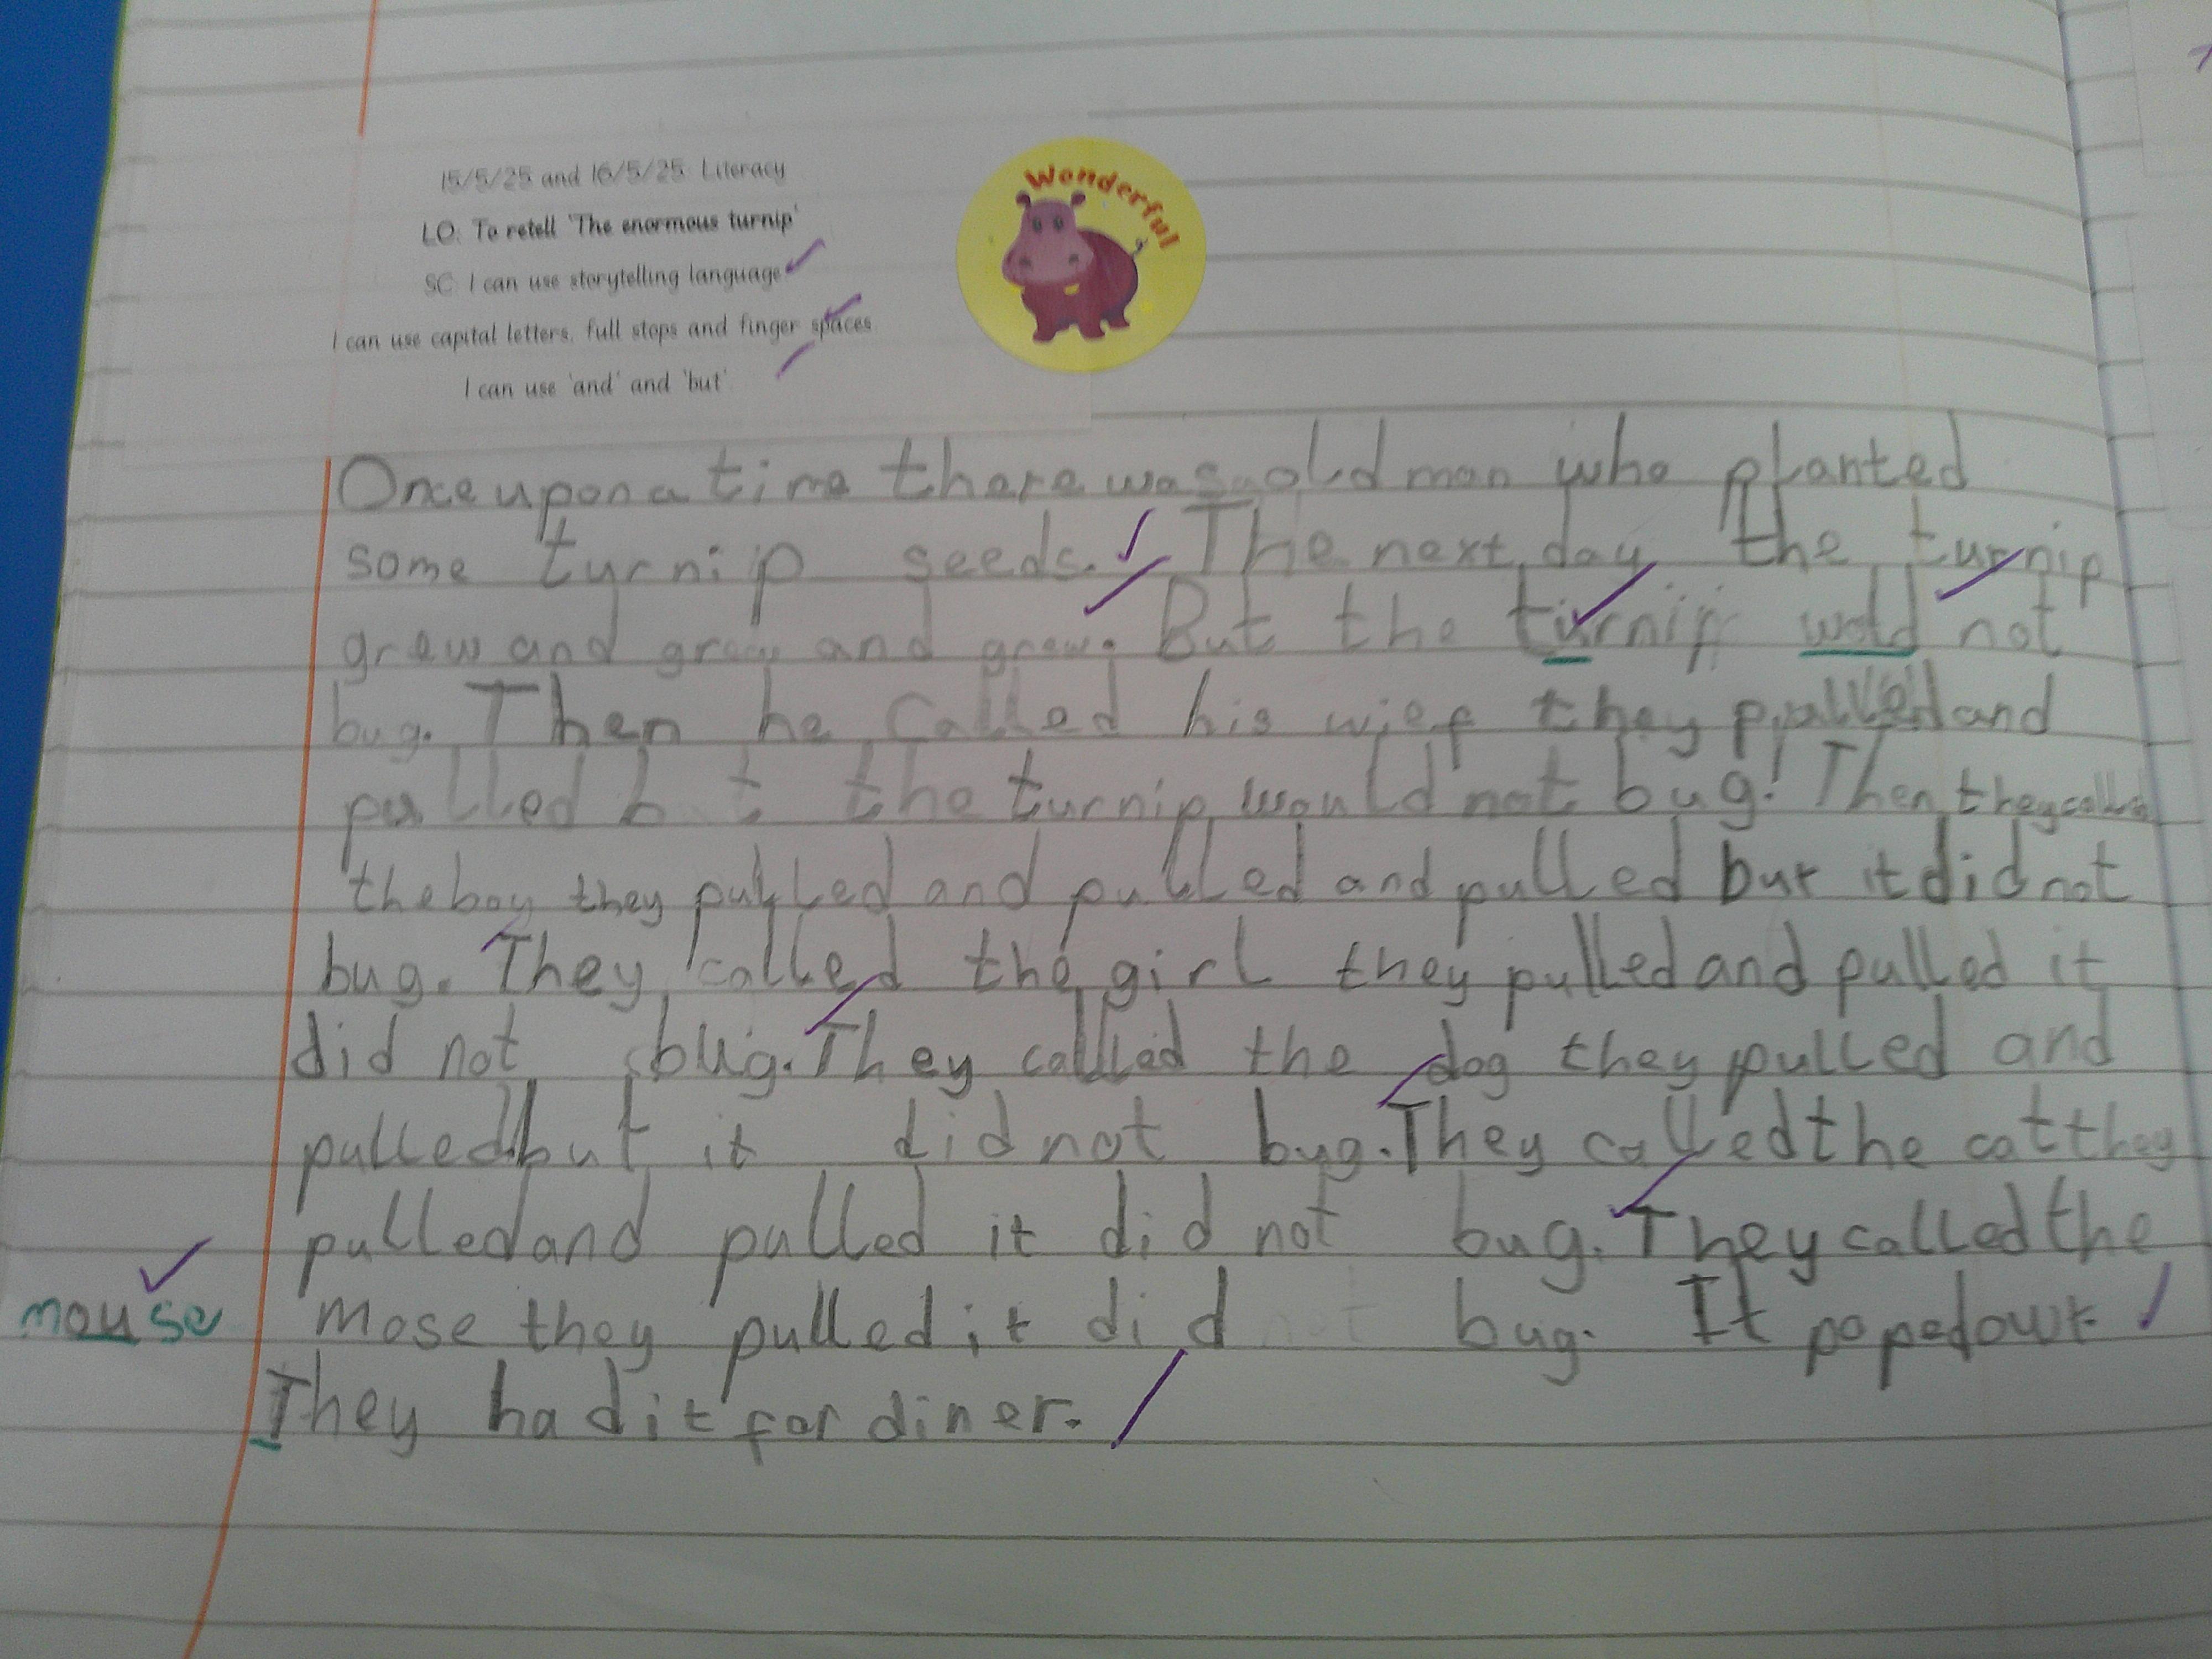 15/5/25 and 16/5/25 Literacy
LO: To retell 'The enormous turnip'
SC: I can use storytelling language
I can use capital letters, full stops and finger spaces
I can use 'and' and 'but'
Wonderful
Once upon a time there was a old man who planted
some turnip seeds. The next day the turnip
grew and grew and grew. But the turnip wold not
bug. Then he called his wief they pulled and
pulled but the turnip would not bug! Then they called
the boy they pulled and pulled and pulled but it did not
bug. They called the girl they pulled and pulled it
did not bug. They called the dog they pulled and
pulled but it did not bug. They called the cat they
pulled and pulled it did not bug. They called the
mouse
mose they pulled it did not bug. It poped out
They had it for diner.